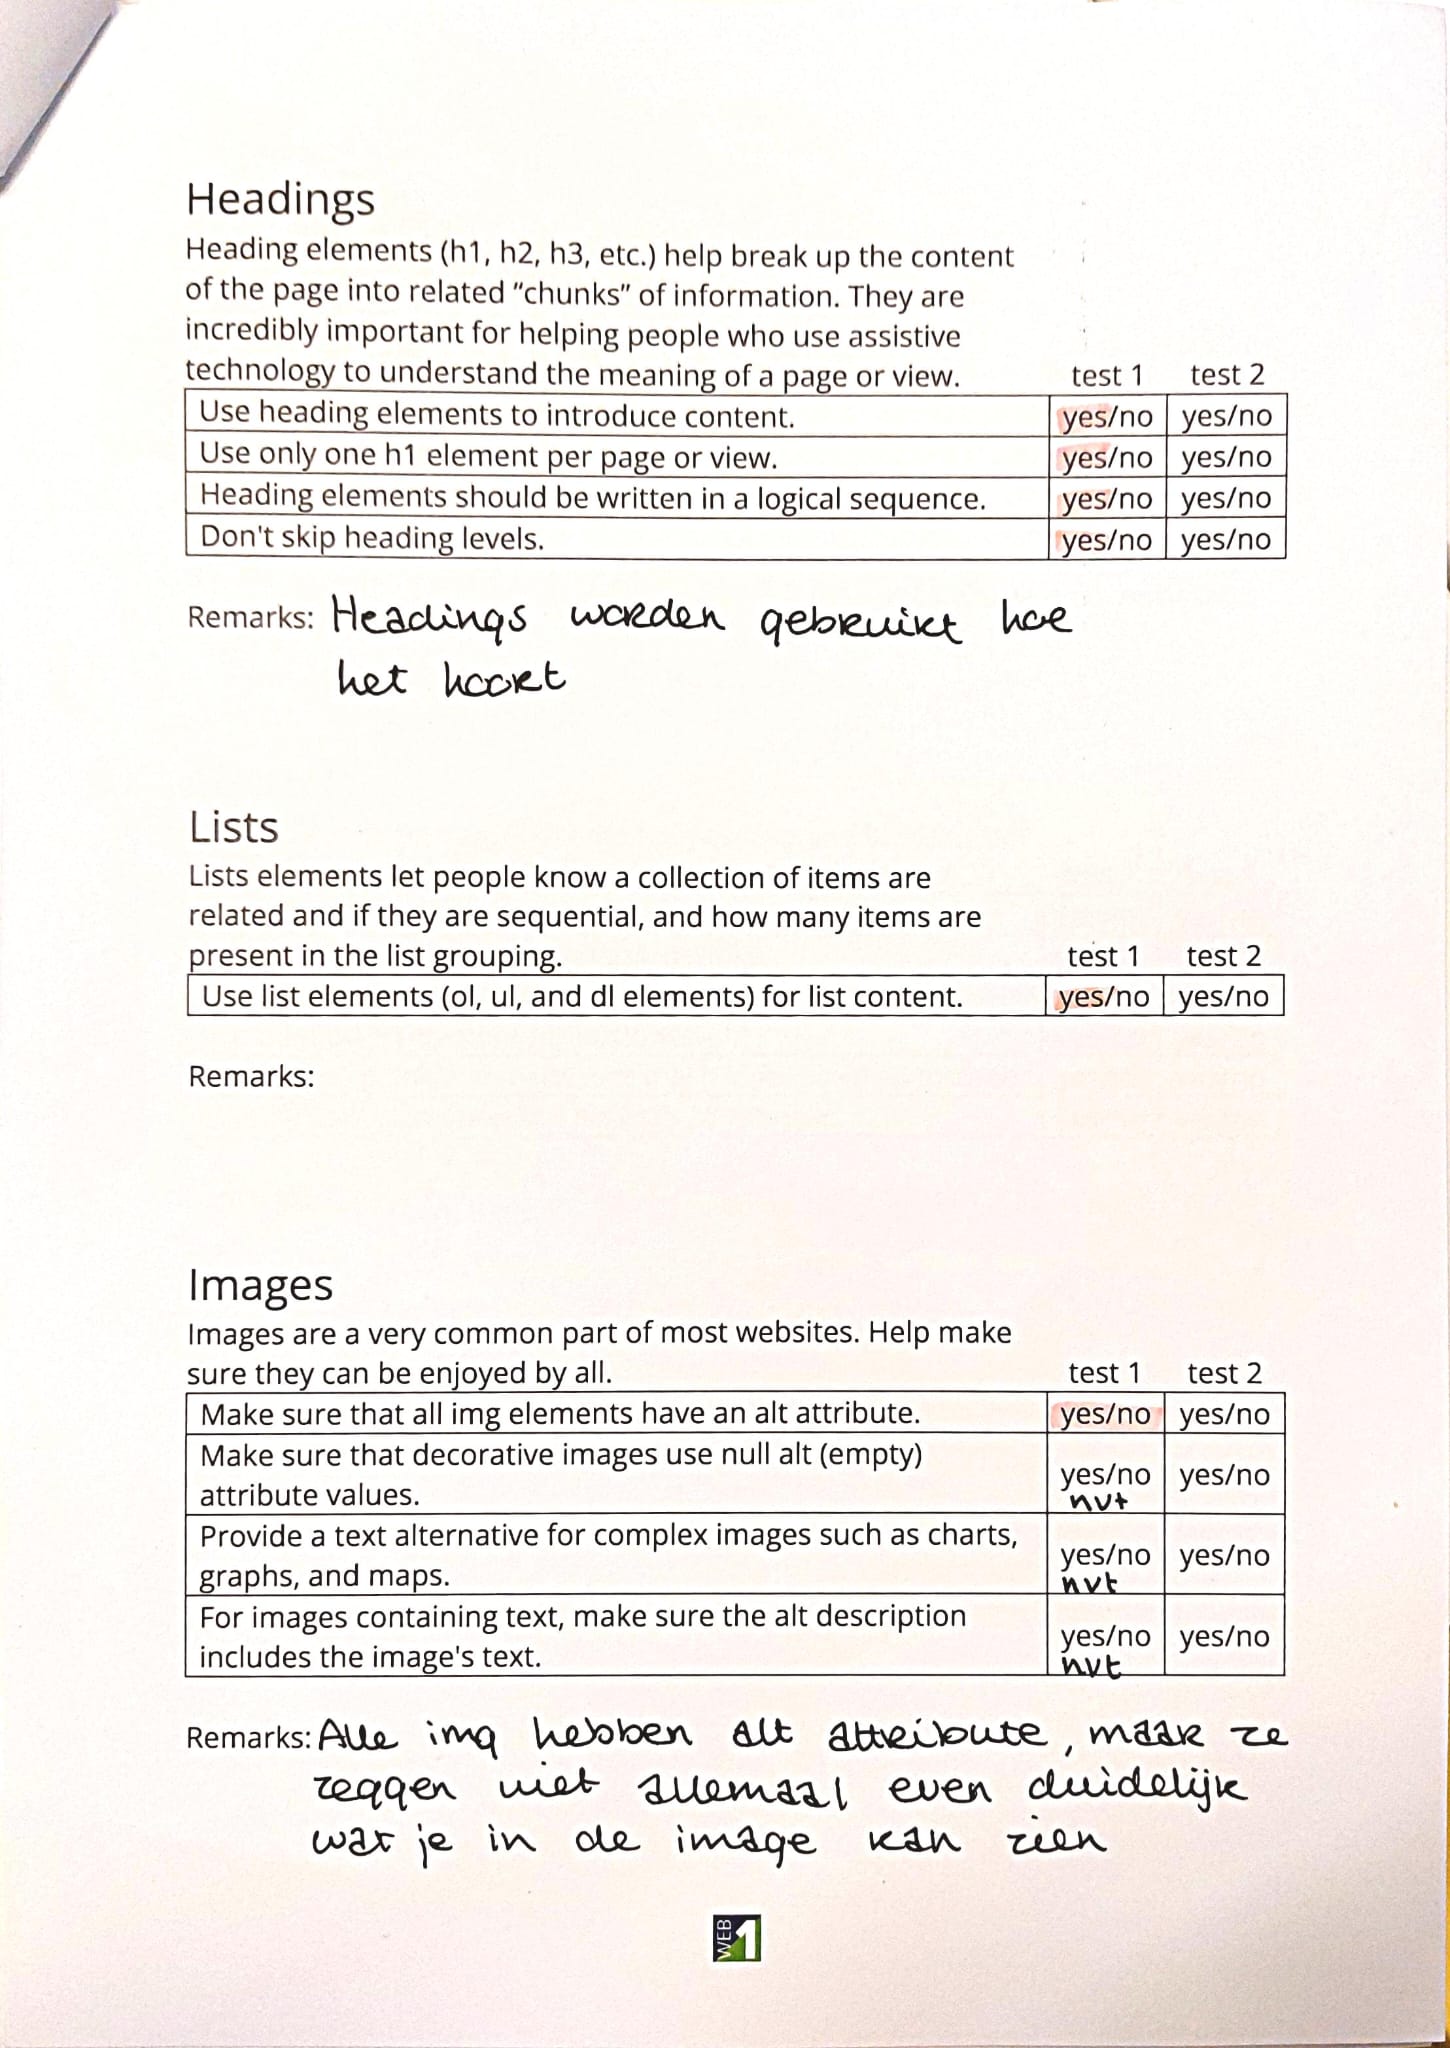 Headings
Heading elements (h1, h2, h3, etc.) help break up the content
of the page into related “chunks” of information. They are
incredibly important for helping people who use assistive
technology to understand the meaning of a page or view. test 1 test 2
Use heading elements to introduce content. yes/no yes/no
Use only one h1 element per page or view. yes/no yes/no
Heading elements should be written in a logical sequence. yes/no yes/no
Don't skip heading levels. yes/no yes/no
Remarks: Headings worden gebruikt hoe
het hoort
Lists
Lists elements let people know a collection of items are
related and if they are sequential, and how many items are
present in the list grouping. test 1 test 2
Use list elements (ol, ul, and dl elements) for list content. yes/no yes/no
Remarks:
Images
Images are a very common part of most websites. Help make
sure they can be enjoyed by all. test 1 test 2
Make sure that all img elements have an alt attribute. yes/no yes/no
Make sure that decorative images use null alt (empty)
attribute values. yes/no yes/no
nvt
Provide a text alternative for complex images such as charts,
graphs, and maps. yes/no yes/no
nvt
For images containing text, make sure the alt description
includes the image's text. yes/no yes/no
nvt
Remarks: Alle img hebben alt attribute, maar ze
zeggen niet allemaal even duidelijk
wat je in de image kan zien
WEB 1